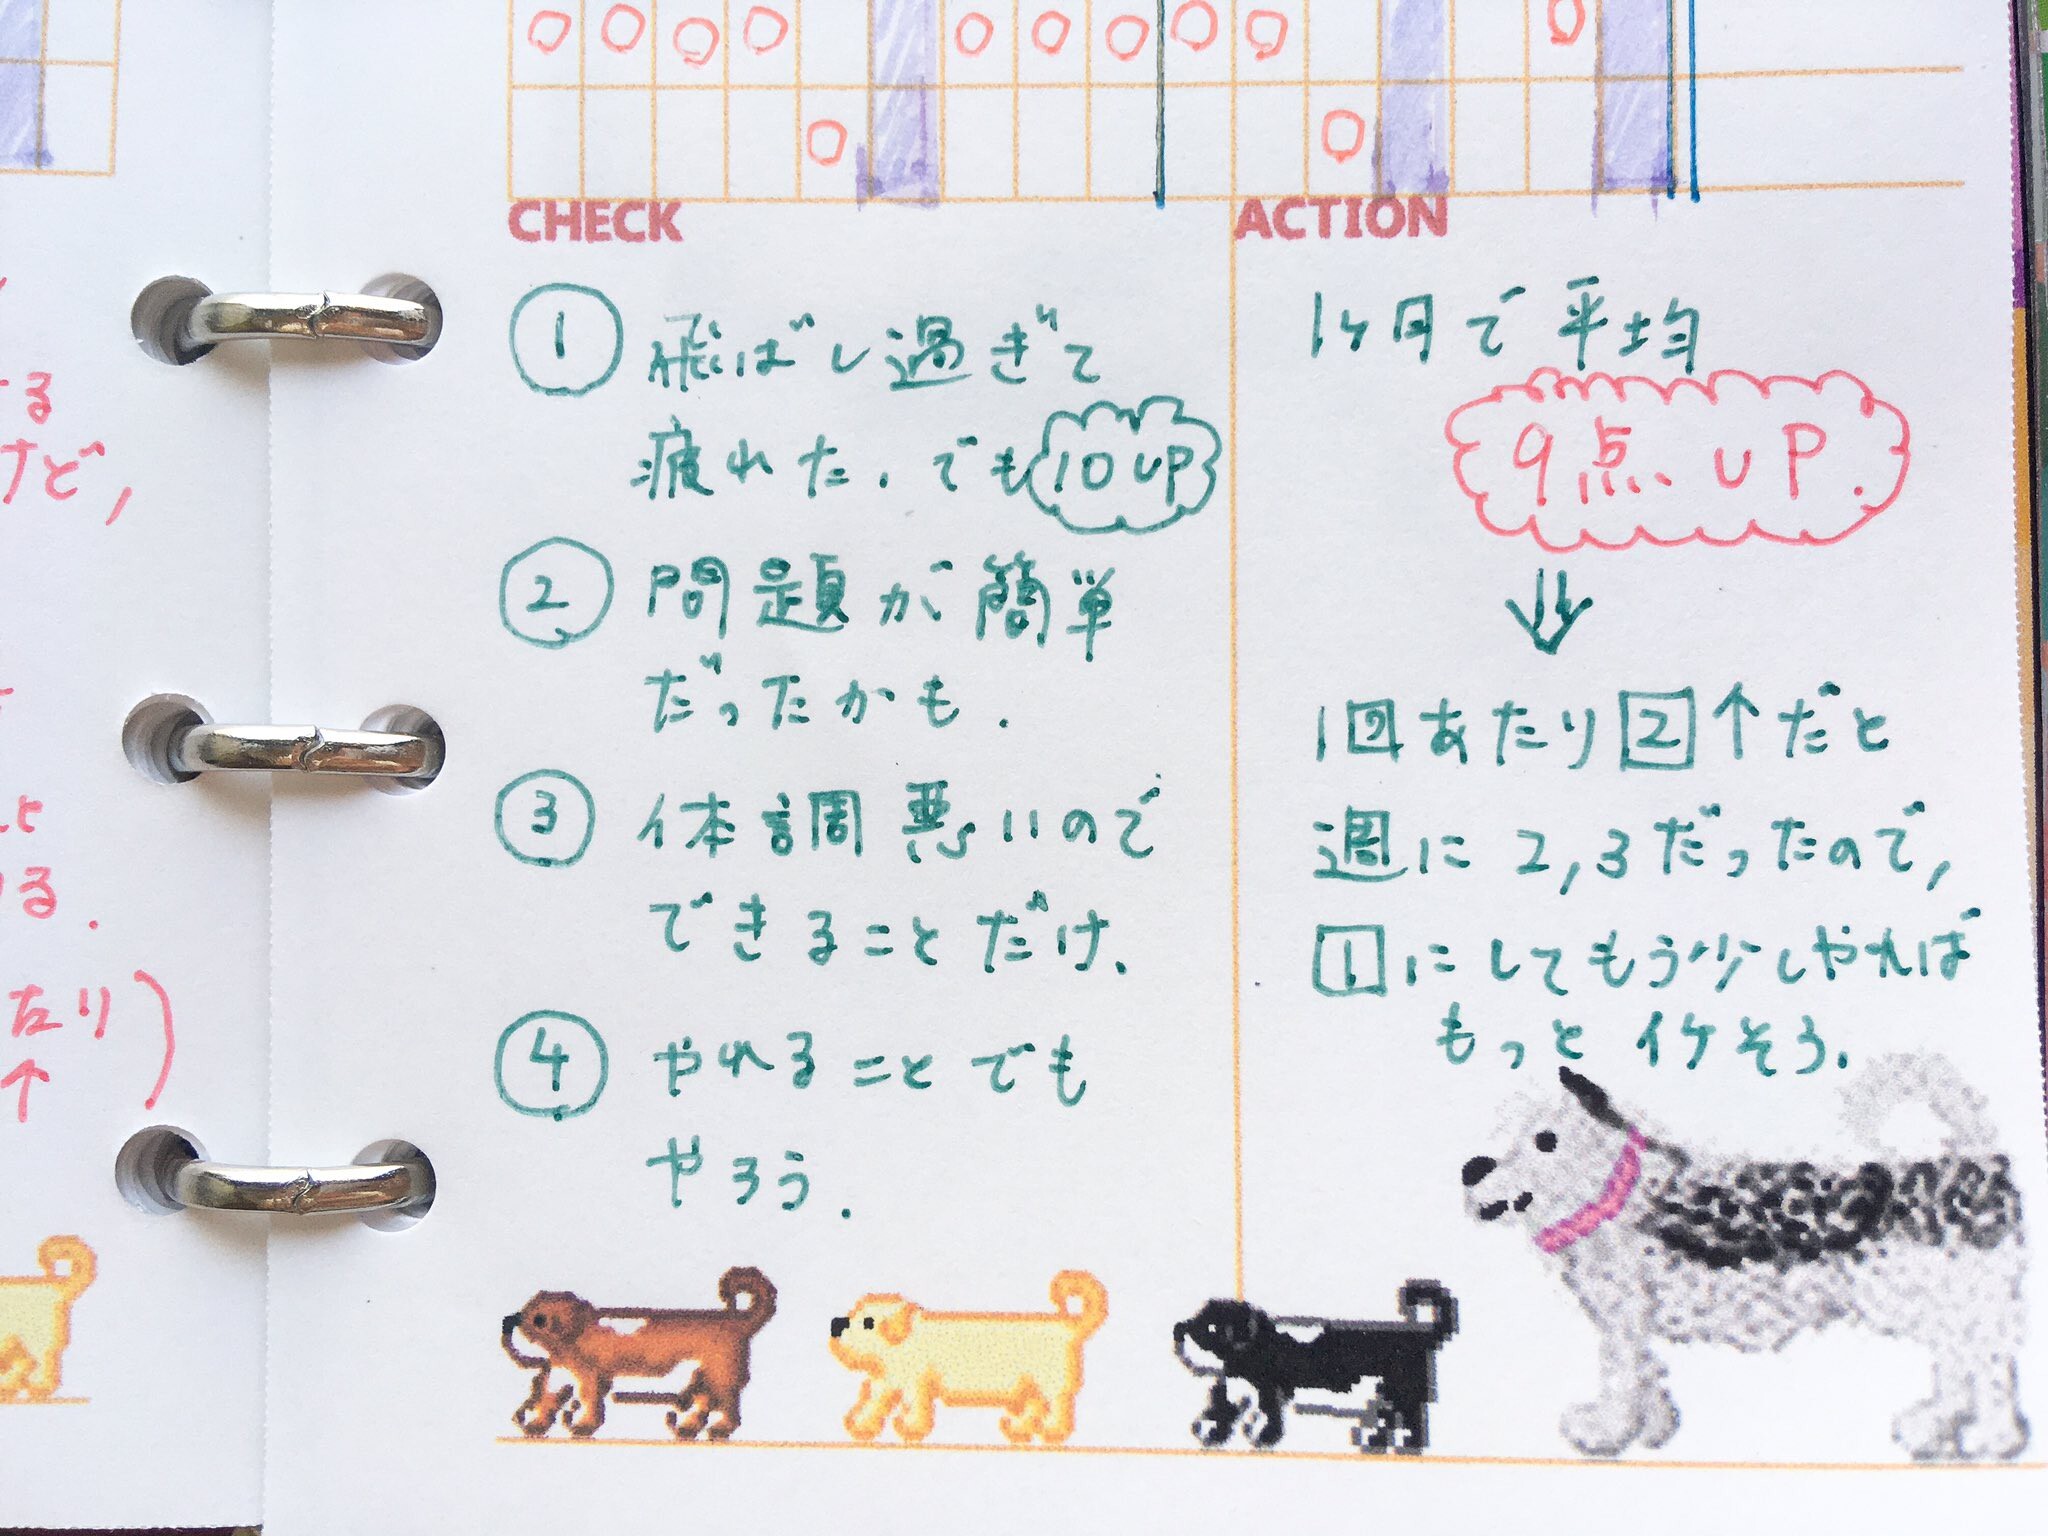 CHECK
① 飛ばし過ぎて
疲れた.でも 10 UP
② 問題が簡単
だったかも.
③ 体調悪いので
できることだけ.
④ やれることでも
やろう.
ACTION
1ヶ月で平均
9点 UP.
⇓
1回あたり2↑だと
週に2,3だったので,
1にしてもう少しやれば
もっとイケそう.
る
けど,
と
る.
たり)
↑